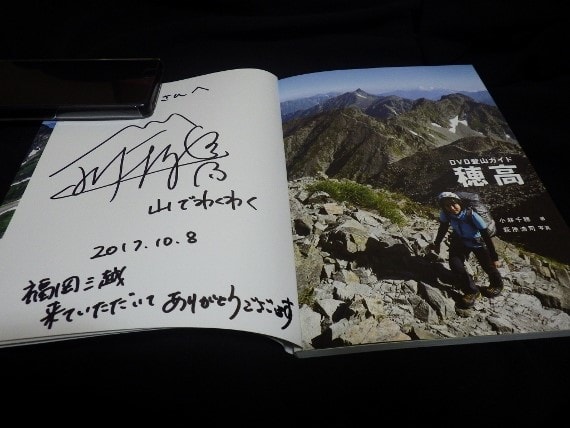 さんへ
山でわくわく
2017.10.8
福岡三越
来ていただいて ありがとうございます
DVD登山ガイド
穂高
小林千穂 著
萩原浩司 写真